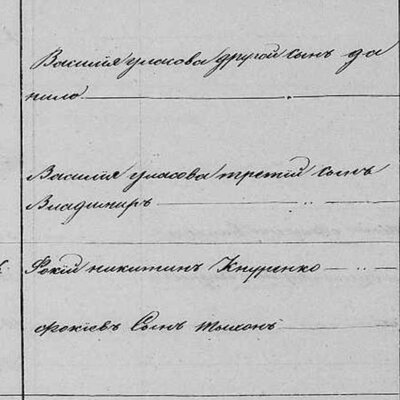 Василія уласова другой сынъ да
нило
Василія уласова третій сынъ
Владимиръ
Фокій никитинъ Кнуренко
фокіевъ Сынъ тыхонъ